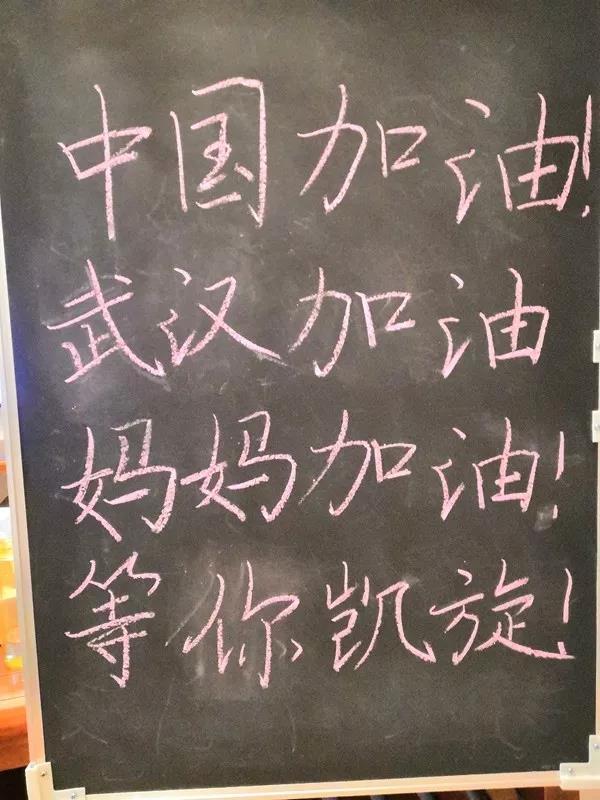 中国加油!
武汉加油
妈妈加油!
等你凯旋!